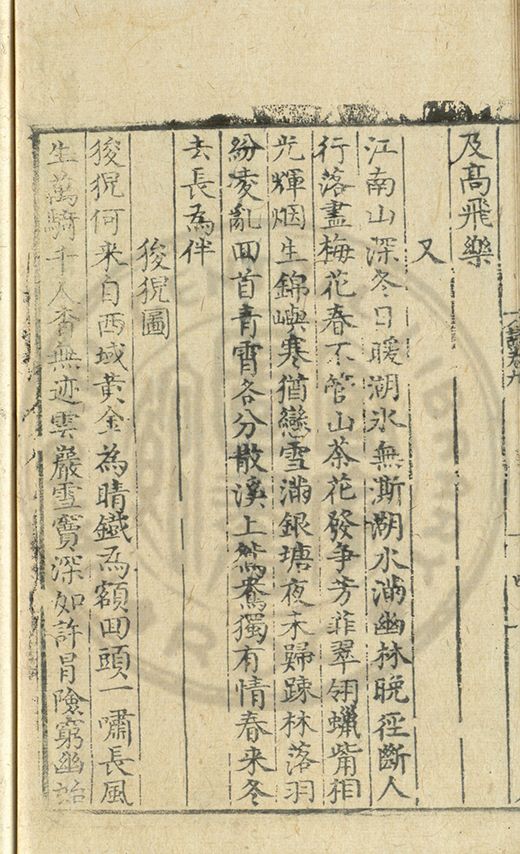 及髙飛樂
又
江南山深冬日暖湖氷無澌湖水滿幽林晚徑斷人
行落盡梅花春不管山茶花發爭芳菲翠翎蠟觜相
光輝烟生錦嶼寒猶戀雪滿銀塘夜未歸踈林落羽
紛凌亂回首青霄各分散溪上鴛鴦獨有情春来冬
去長為伴
狻猊圖
狻猊何来自西域黄金為睛鐵為額回頭一嘯長風
生萬騎千人杳無迹雲巖雪竇深如許冒險窮幽